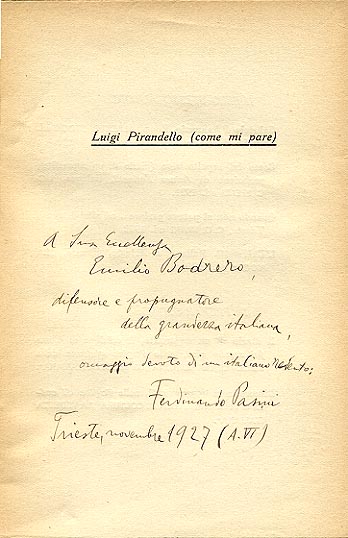 Luigi Pirandello (come mi pare)
A Sua Eccellenza
Emilio Bodrero,
difensore e propugnatore
della grandezza italiana,
omaggio devoto di un italiano redento:
Ferdinando Pasini
Trieste, novembre 1927 (A. VI)